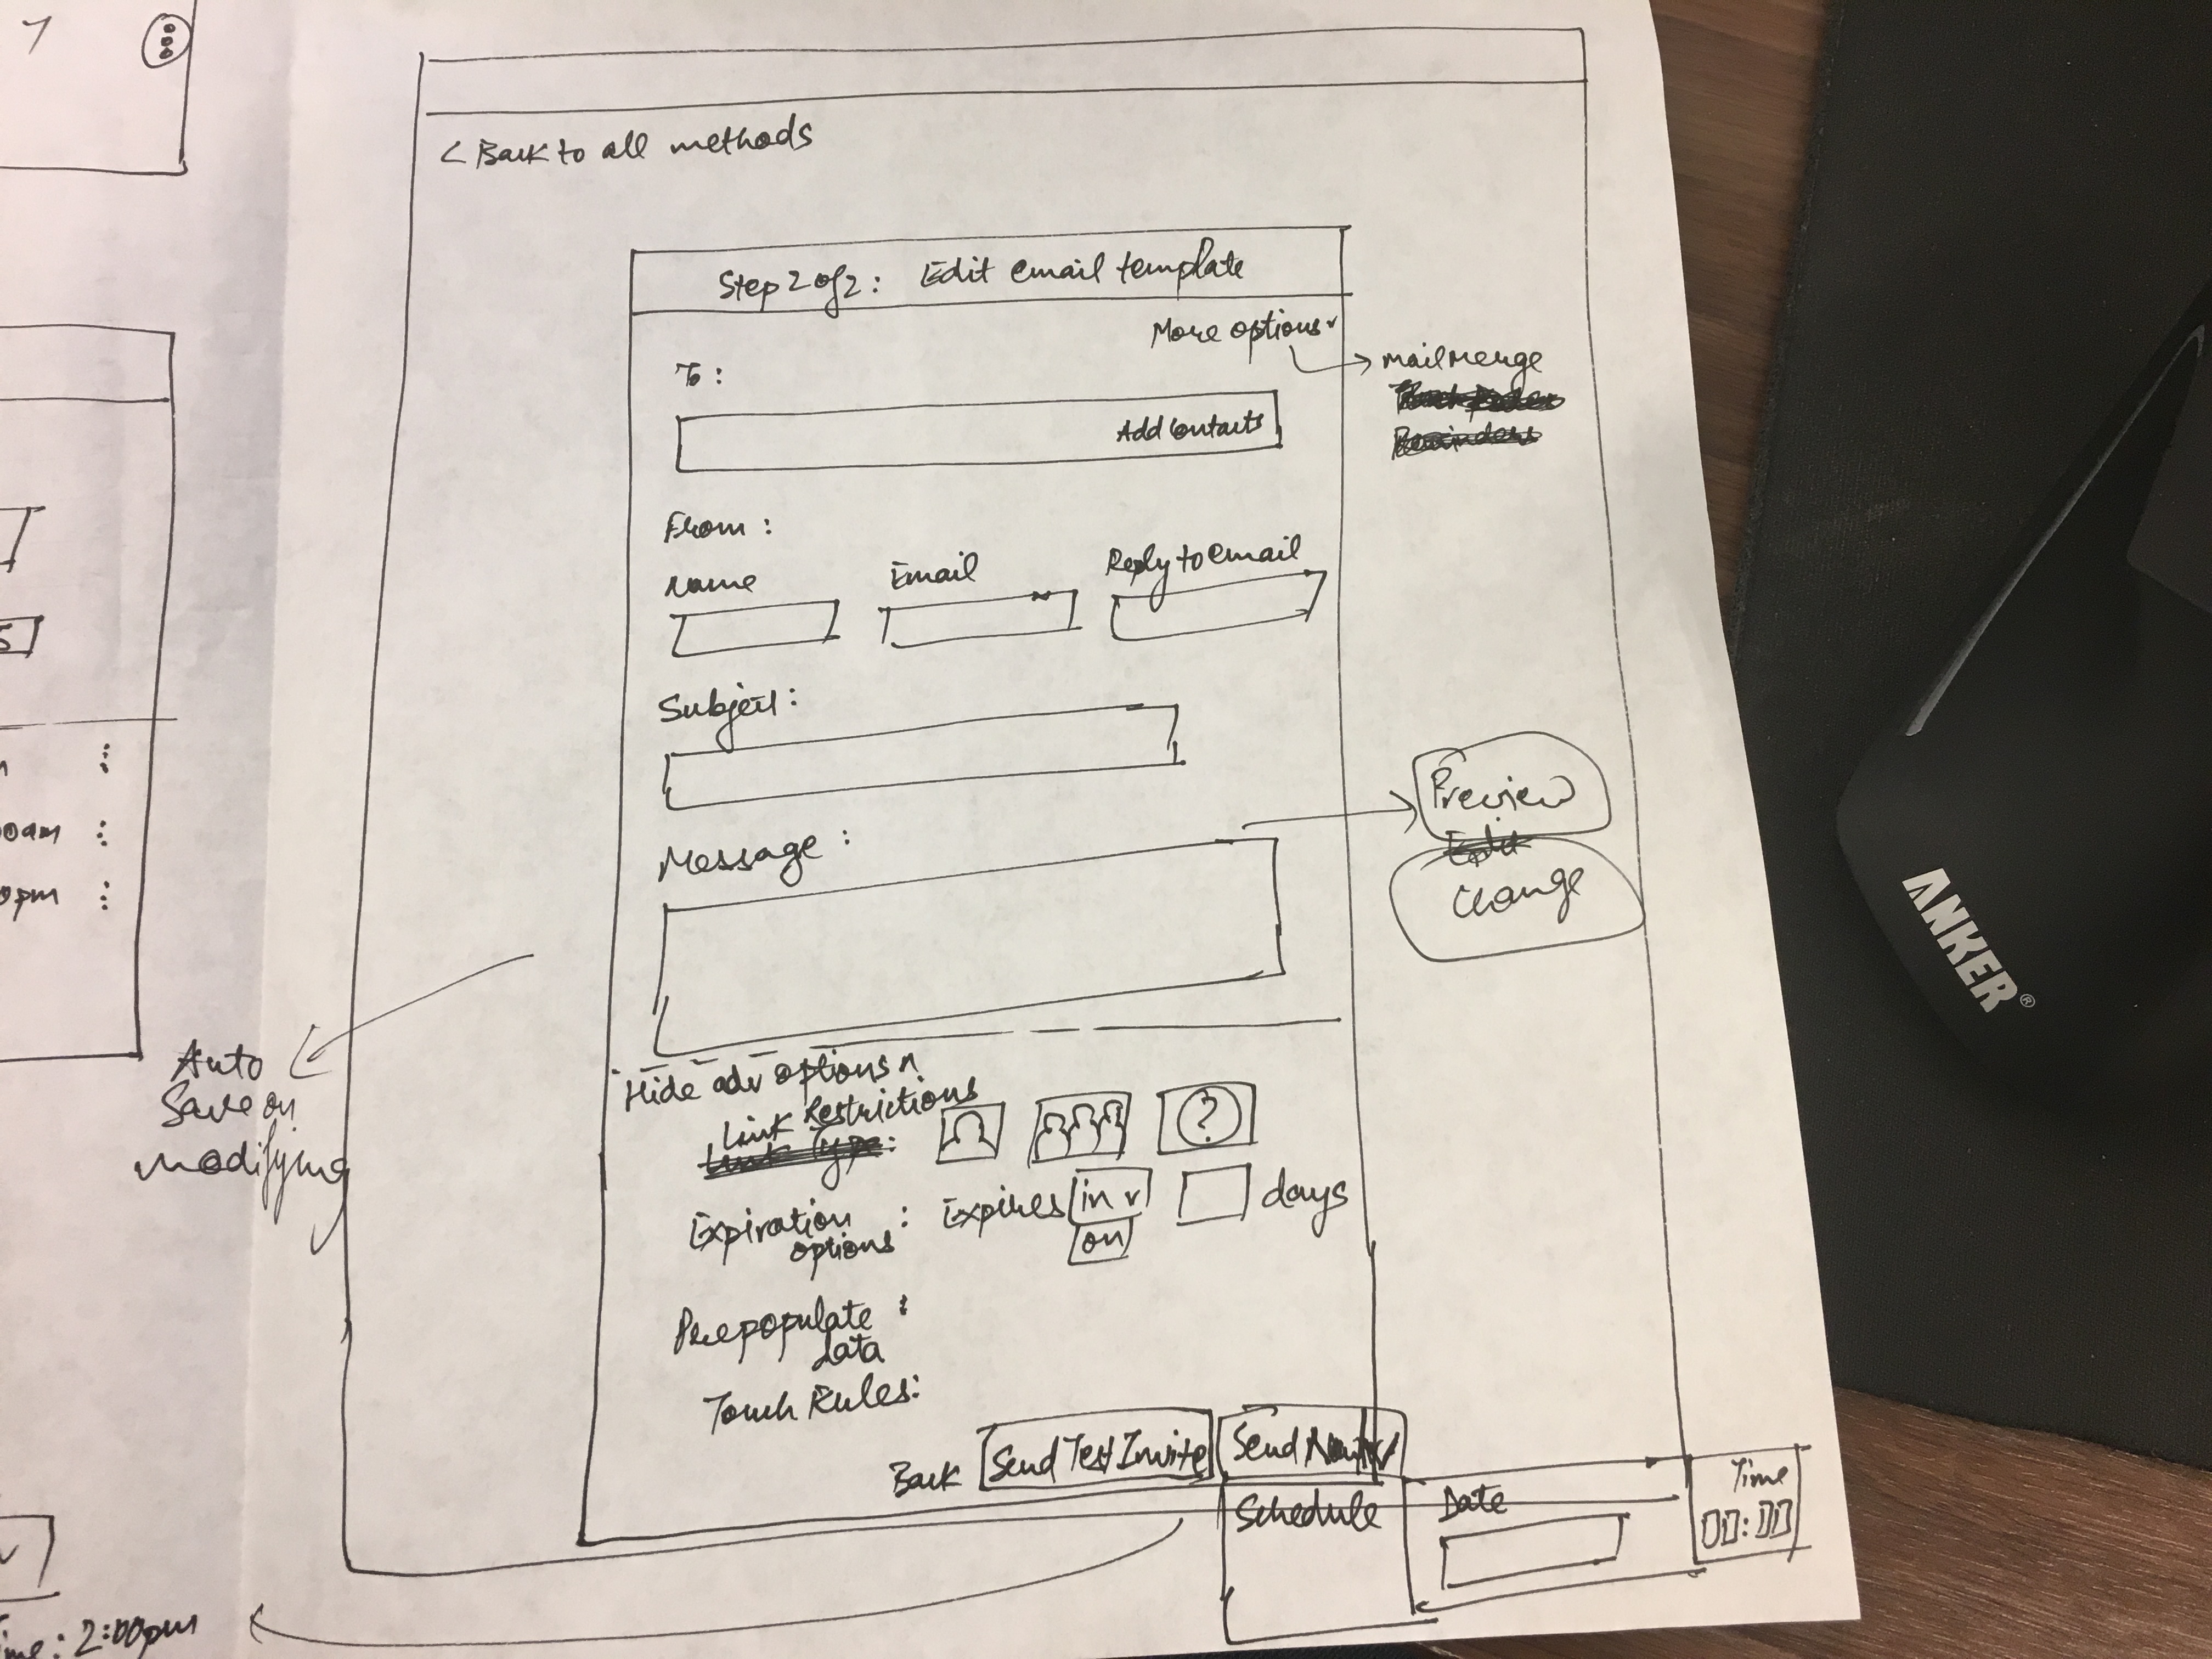 < Back to all methods
Step 2 of 2: Edit email template
More options
To:
mailmerge
Add Contacts
Reminders
From:
Name Email Reply to email
Subject:
Preview
Edit
Message:
Change
00am
0pm
Auto
Save on
modifying
Hide adv options
Link Restrictions
Link Type:
?
Expiration options : Expires in days
on
Prepopulate data :
Touch Rules:
Back Send Test Invite Send Now
Schedule Date Time
00:00
ime: 2:00pm
ANKER®